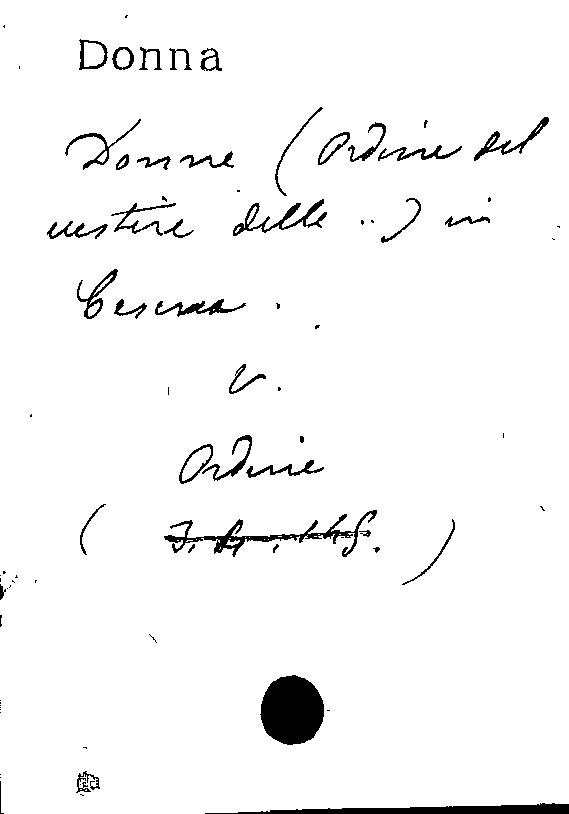 Donna
Donne (Ordine del
vestire delle ..) in
Cesena.
V.
Ordine
( )